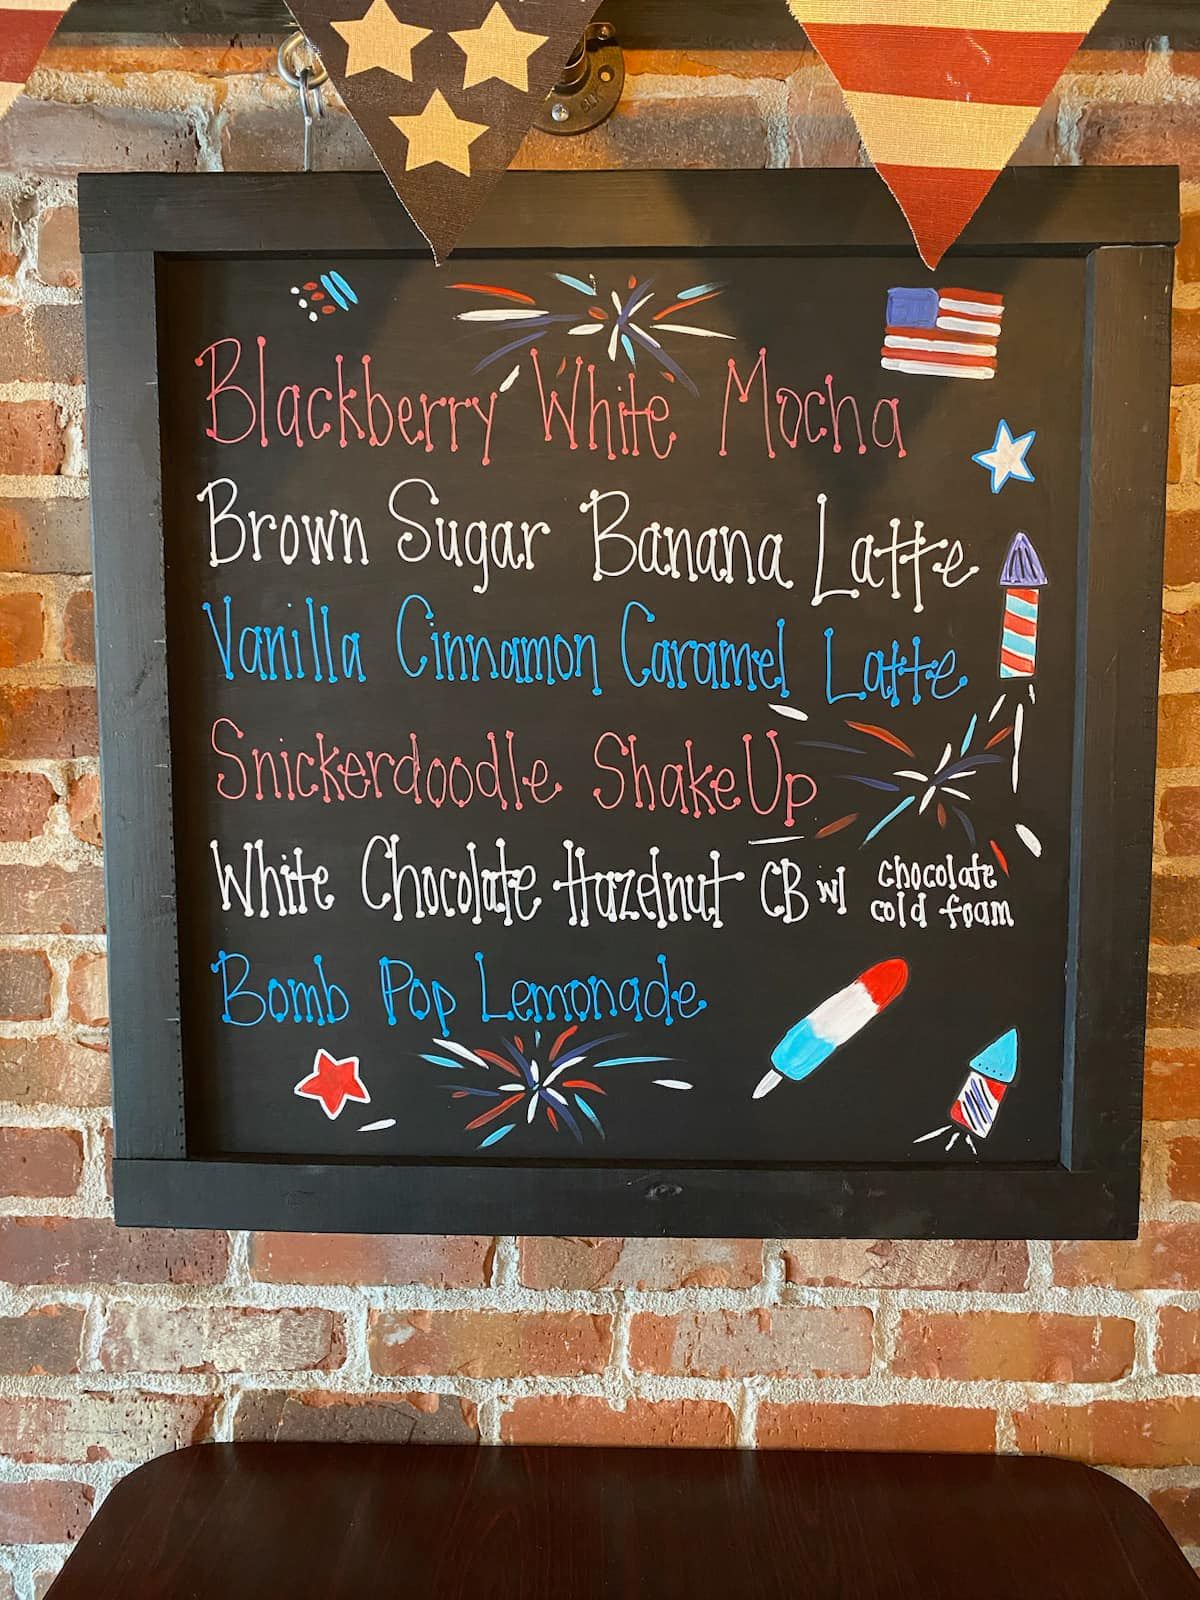 Blackberry White Mocha
Brown Sugar Banana Latte
Vanilla Cinnamon Caramel Latte
Snickerdoodle ShakeUp
White Chocolate Hazelnut CB w/ chocolate cold foam
Bomb Pop Lemonade